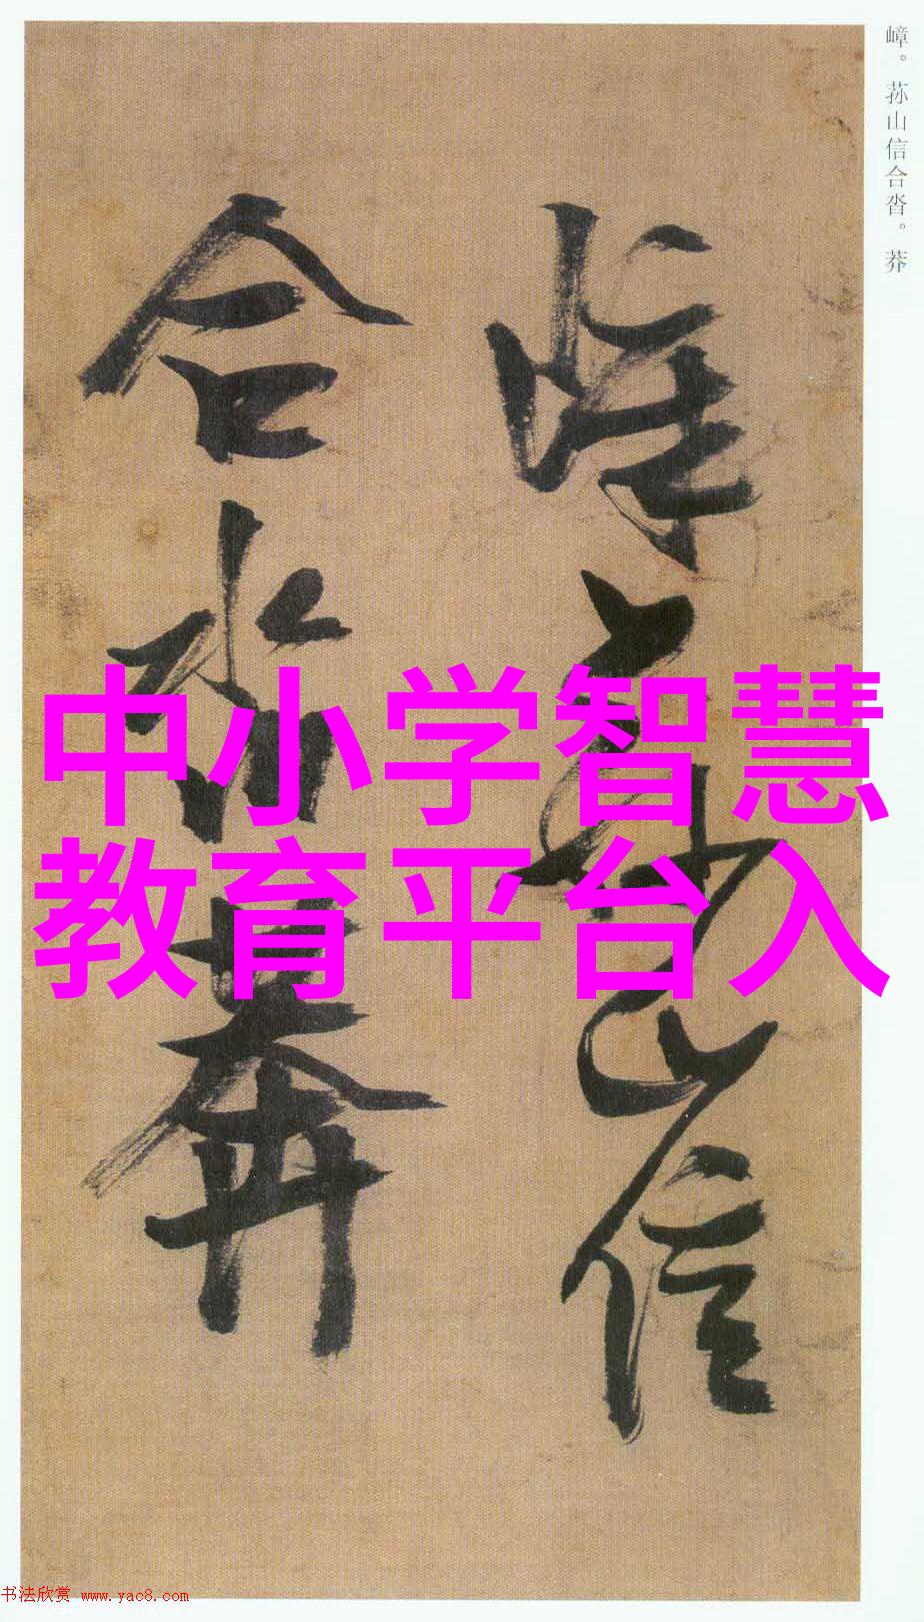 嶂。荪山信合沓。莽
嶂荪山信
合沓莽
中小学智慧
教育平台入
书法欣赏 www.yac8.com